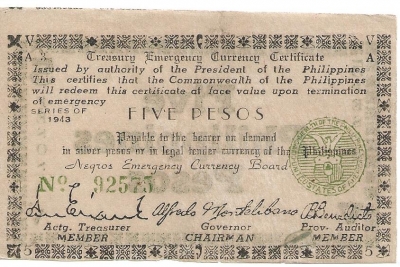 V V
Treasury Emergency Currency Certificate
A A
issued by authority of the President of the Philippines
This certifies that the Commonwealth of the Philippines
will redeem this certificate at face value upon termination
of emergency
SERIES OF
1943
FIVE PESOS
Payable to the bearer on demand
in silver pesos or in legal tender currency of the Philippines
Negros Emergency Currency Board
No. 92575
Alfredo Montelibano
Actg. Treasurer Governor Prov. Auditor
MEMBER CHAIRMAN MEMBER
5 5